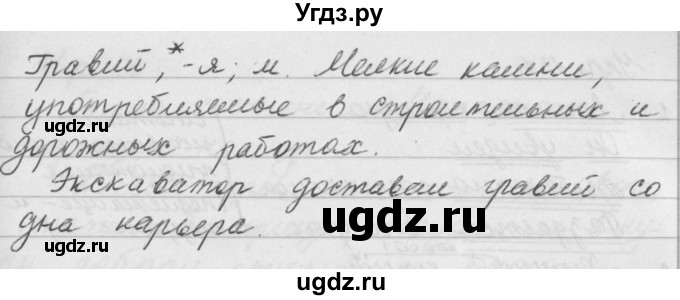 Угдз.ру
Гравий,*-я; м. Мелкие камни,
употребляемые в строительных и
угдз.ru
дорожных работах.
Экскаватор доставал гравий со
угдз.ru
дна карьера.
угдз.ru
угдз.ru